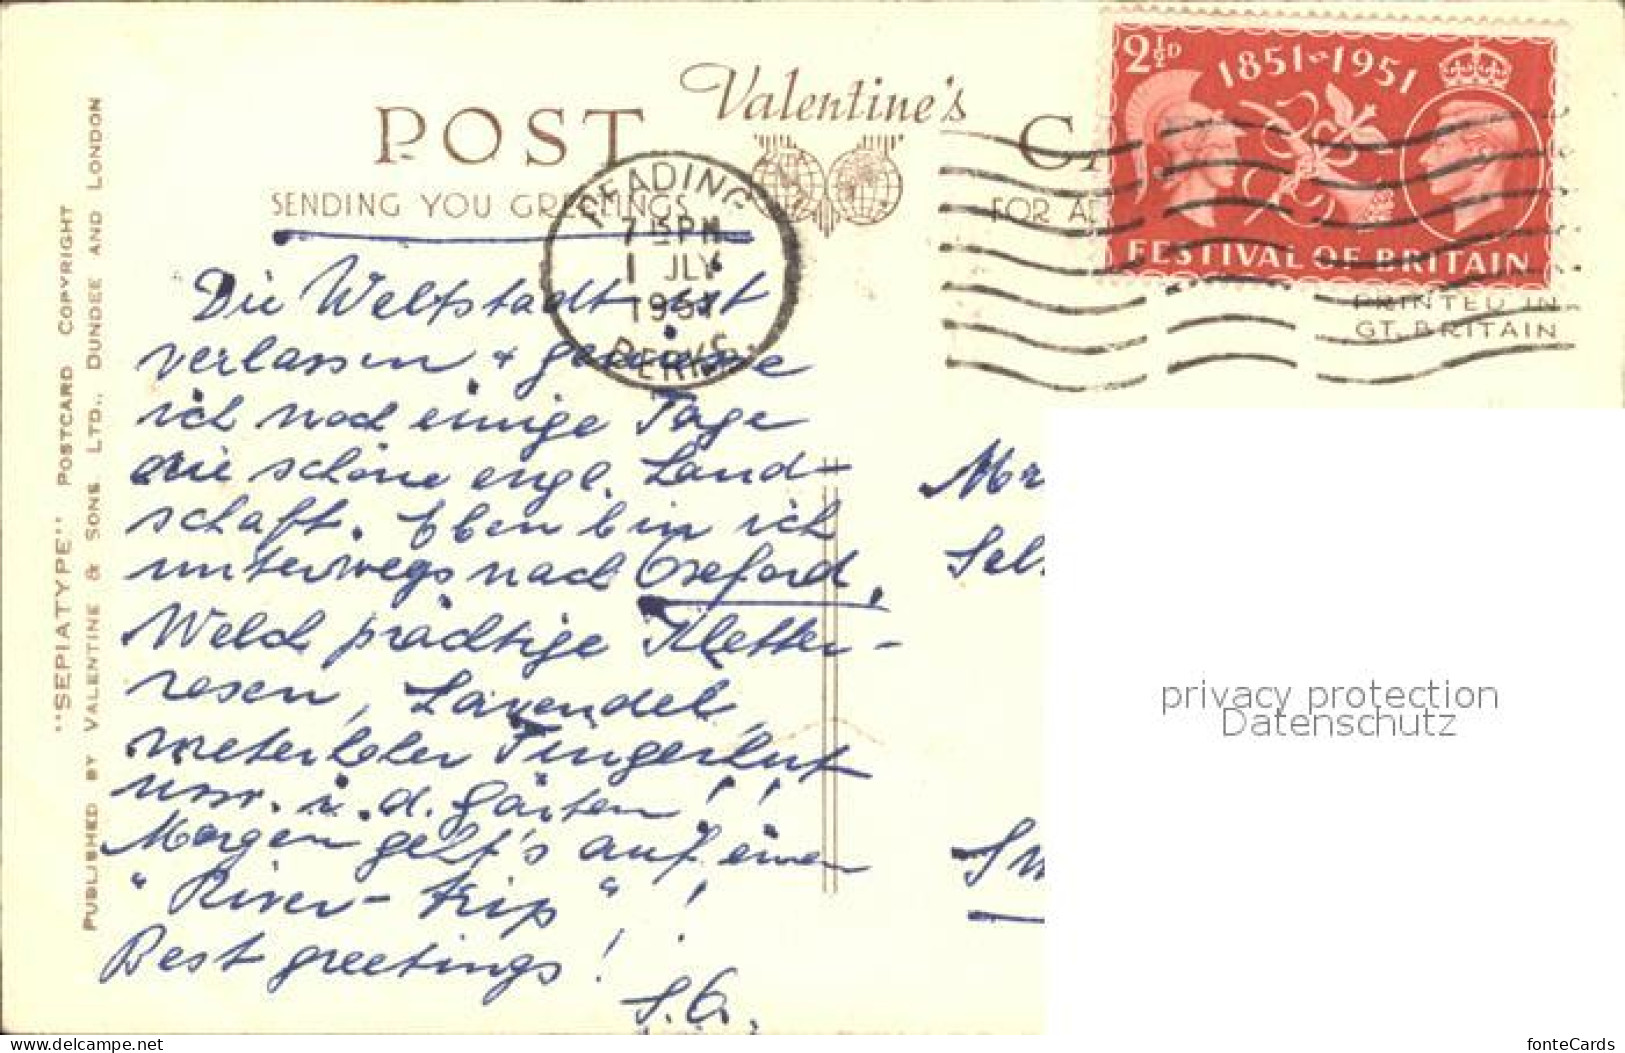 Valentine's
POST
SENDING YOU GREETINGS
FOR
2½D
1851-1951
FESTIVAL OF BRITAIN
PRINTED IN
GT. BRITAIN
READING
7 15 PM
1 JLY
1951
BERKS.
"SEPIATYPE" POSTCARD COPYRIGHT
PUBLISHED BY VALENTINE & SONS LTD., DUNDEE AND LONDON
Die Weltstadt ist
verlassen + geniesse
ich noch einige Tage
die schöne engl. Land-
schaft. Eben bin ich
unterwegs nach Oxeford,
Welch prächtige Kletter-
rosen, Lavendel,
meterhoher Fingerhut
usw. i. d. Gärten!!
Morgen geht's auf einen
"River-trip"!
Best greetings!
S.G.
Mr
privacy protection
Datenschutz
fonteCards
delcampe.net